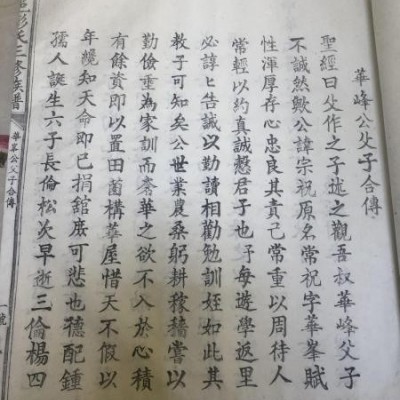 華峰公父子合傳
聖經曰父作之子述之觀吾叔華峰父子
不誠然歟公諱宗祝原名常祝字華峯賦
性渾厚存心忠良其責己常重以周待人
常輕以約真誠慤君子也予每遊學返里
必諄〻告誡以勤讀相勸勉訓姪如此其
教子可知矣公世業農桑躬耕稼穡嘗以
勤儉重為家訓而奢華之欲不入於心積
有餘資即以置田菌構華屋惜天不假以
年纔知天命即已捐舘庶可悲也德配鍾
孺人誕生六子長倫松次早逝三倫楊四
彭氏三修族譜
華峯公父子合傳
一